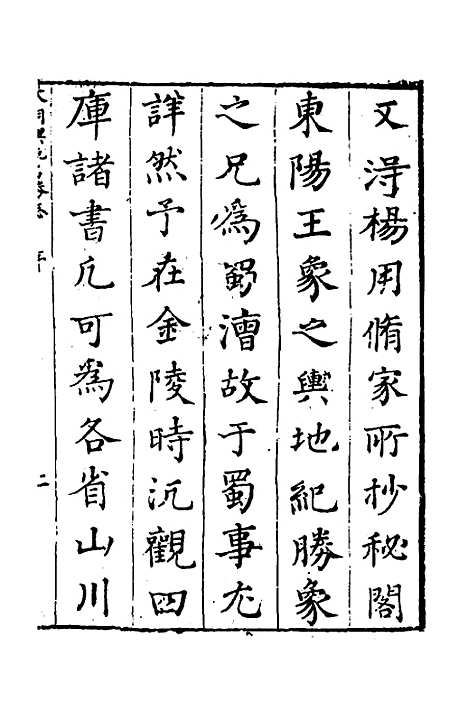 又淂楊用脩家所抄秘閣
東陽王象之輿地紀勝象
之兄爲蜀漕故于蜀事尤
詳然予在金陵時汎觀四
庫諸書凡可爲各省山川
二